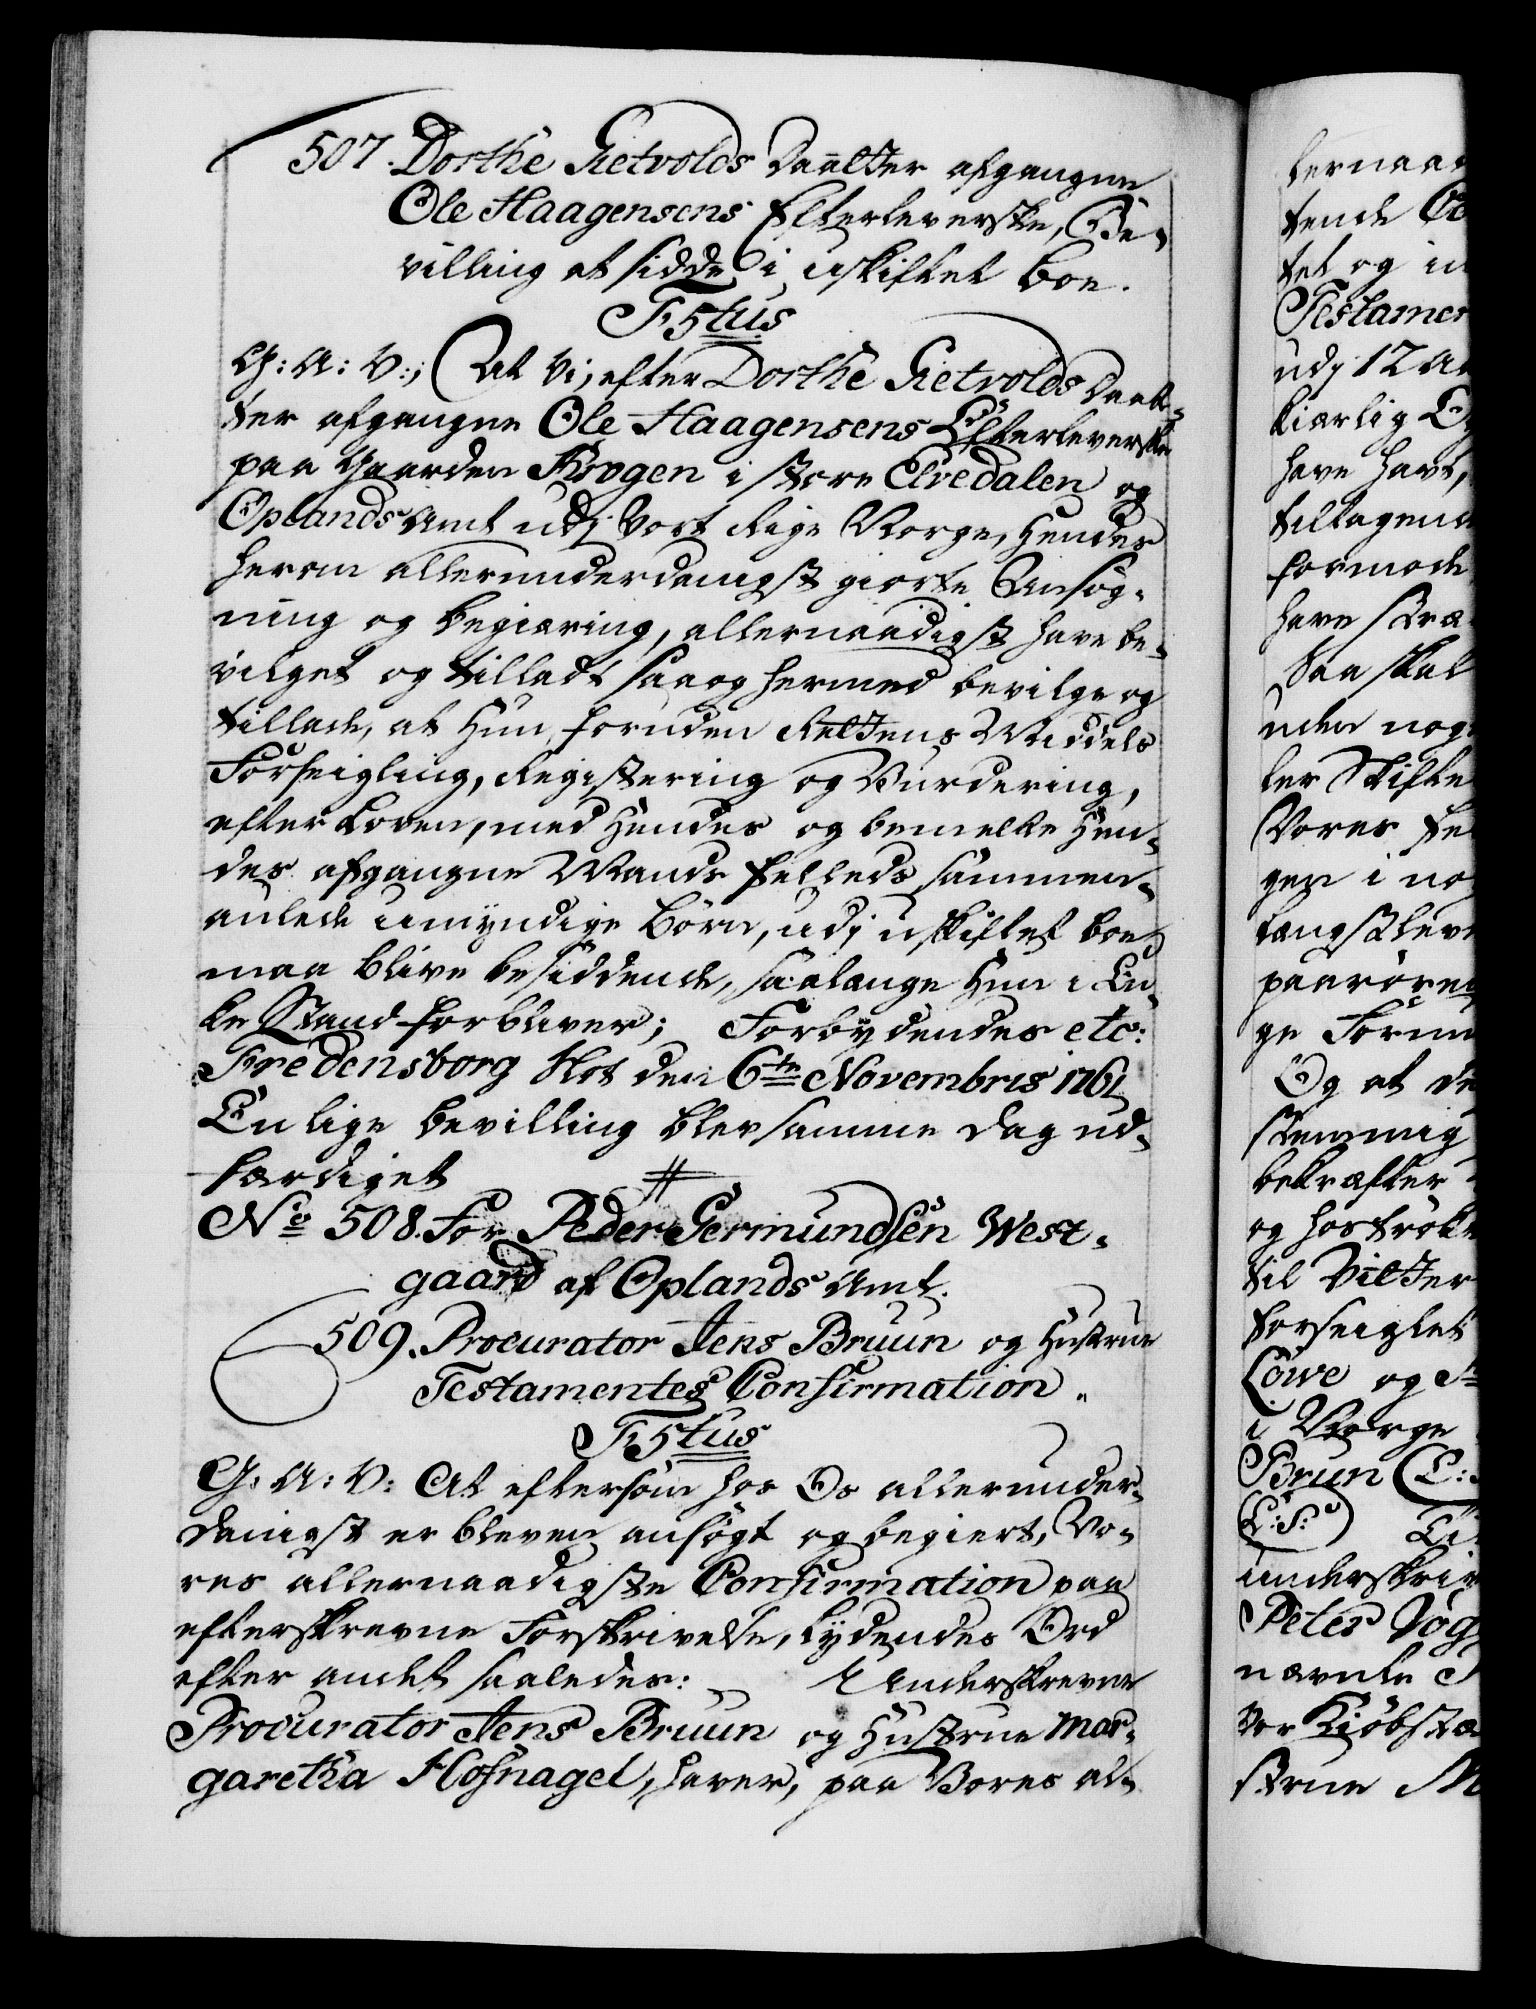 507. Dorthe Ketvolds Daatter afgangne
Ole Haagensens Efterleverske, Be-
villing at sidde i uskiftet Boe.
F5tus
G: A: V:, At Vi, efter Dorthe Ketvolds Daat-
ter afgangne Ole Haagensens Efterleverske
paa Gaarden Krogen i store Elvedalen og
Oplands Amt udj Vort Rige Norge, Hendes
herom allerunderdanigst giorte Ansøg-
ning og begiæring, allernaadigst have be-
vilget og tilladt saa og hermed bevilge og
tillade, at Hun, foruden Rettens Middels
Forseigling, Registering og Vurdering,
efter Loven, med Hendes og bemelte Hen-
des afgangne Mands fælleds sammen-
aulede umyndige Børn, udj uskiftet boe
maa blive besiddende, saalænge Hun i En-
ke Stand forbliver; Forbydendes etc:
Fredensborg Slot den 6te Novembris 1761
En lige bevilling blev samme Dag ud-
færdiget
No 508. For Peder Germundsen West-
gaard af Oplands Amt.
509. Procurator Jens Bruun og Hustrue
Testamentes Confirmation.
F5tus
G: A: V: At eftersom hos Os allerunder-
danigst er bleven ansøgt og begiert, Vo-
res allernaadigste Confirmation paa
efterskrevne Forskrivelse, lydendes Ord
efter andet saaledes: Underskrevne
Procurator Jens Bruun og Hustrue Mar-
garetha Hofnagel, haver, paa Vores al-
tende
tet og in
Testamen
udj 12
kiærlig
have havt,
tiltagend
formode
have
Saa skal
uden nog
ler Skifte
Vores
gen i no
længstleve
paarøren
ge Form
Og at de
stemmig
bekræfter
og hostrøk
til Vitter
forseiglet
Löwe og
i Norge
Brun (L:
L:S:
underskriv
Peter Vog
nævnte
Vor Kiöbstæ
strue M